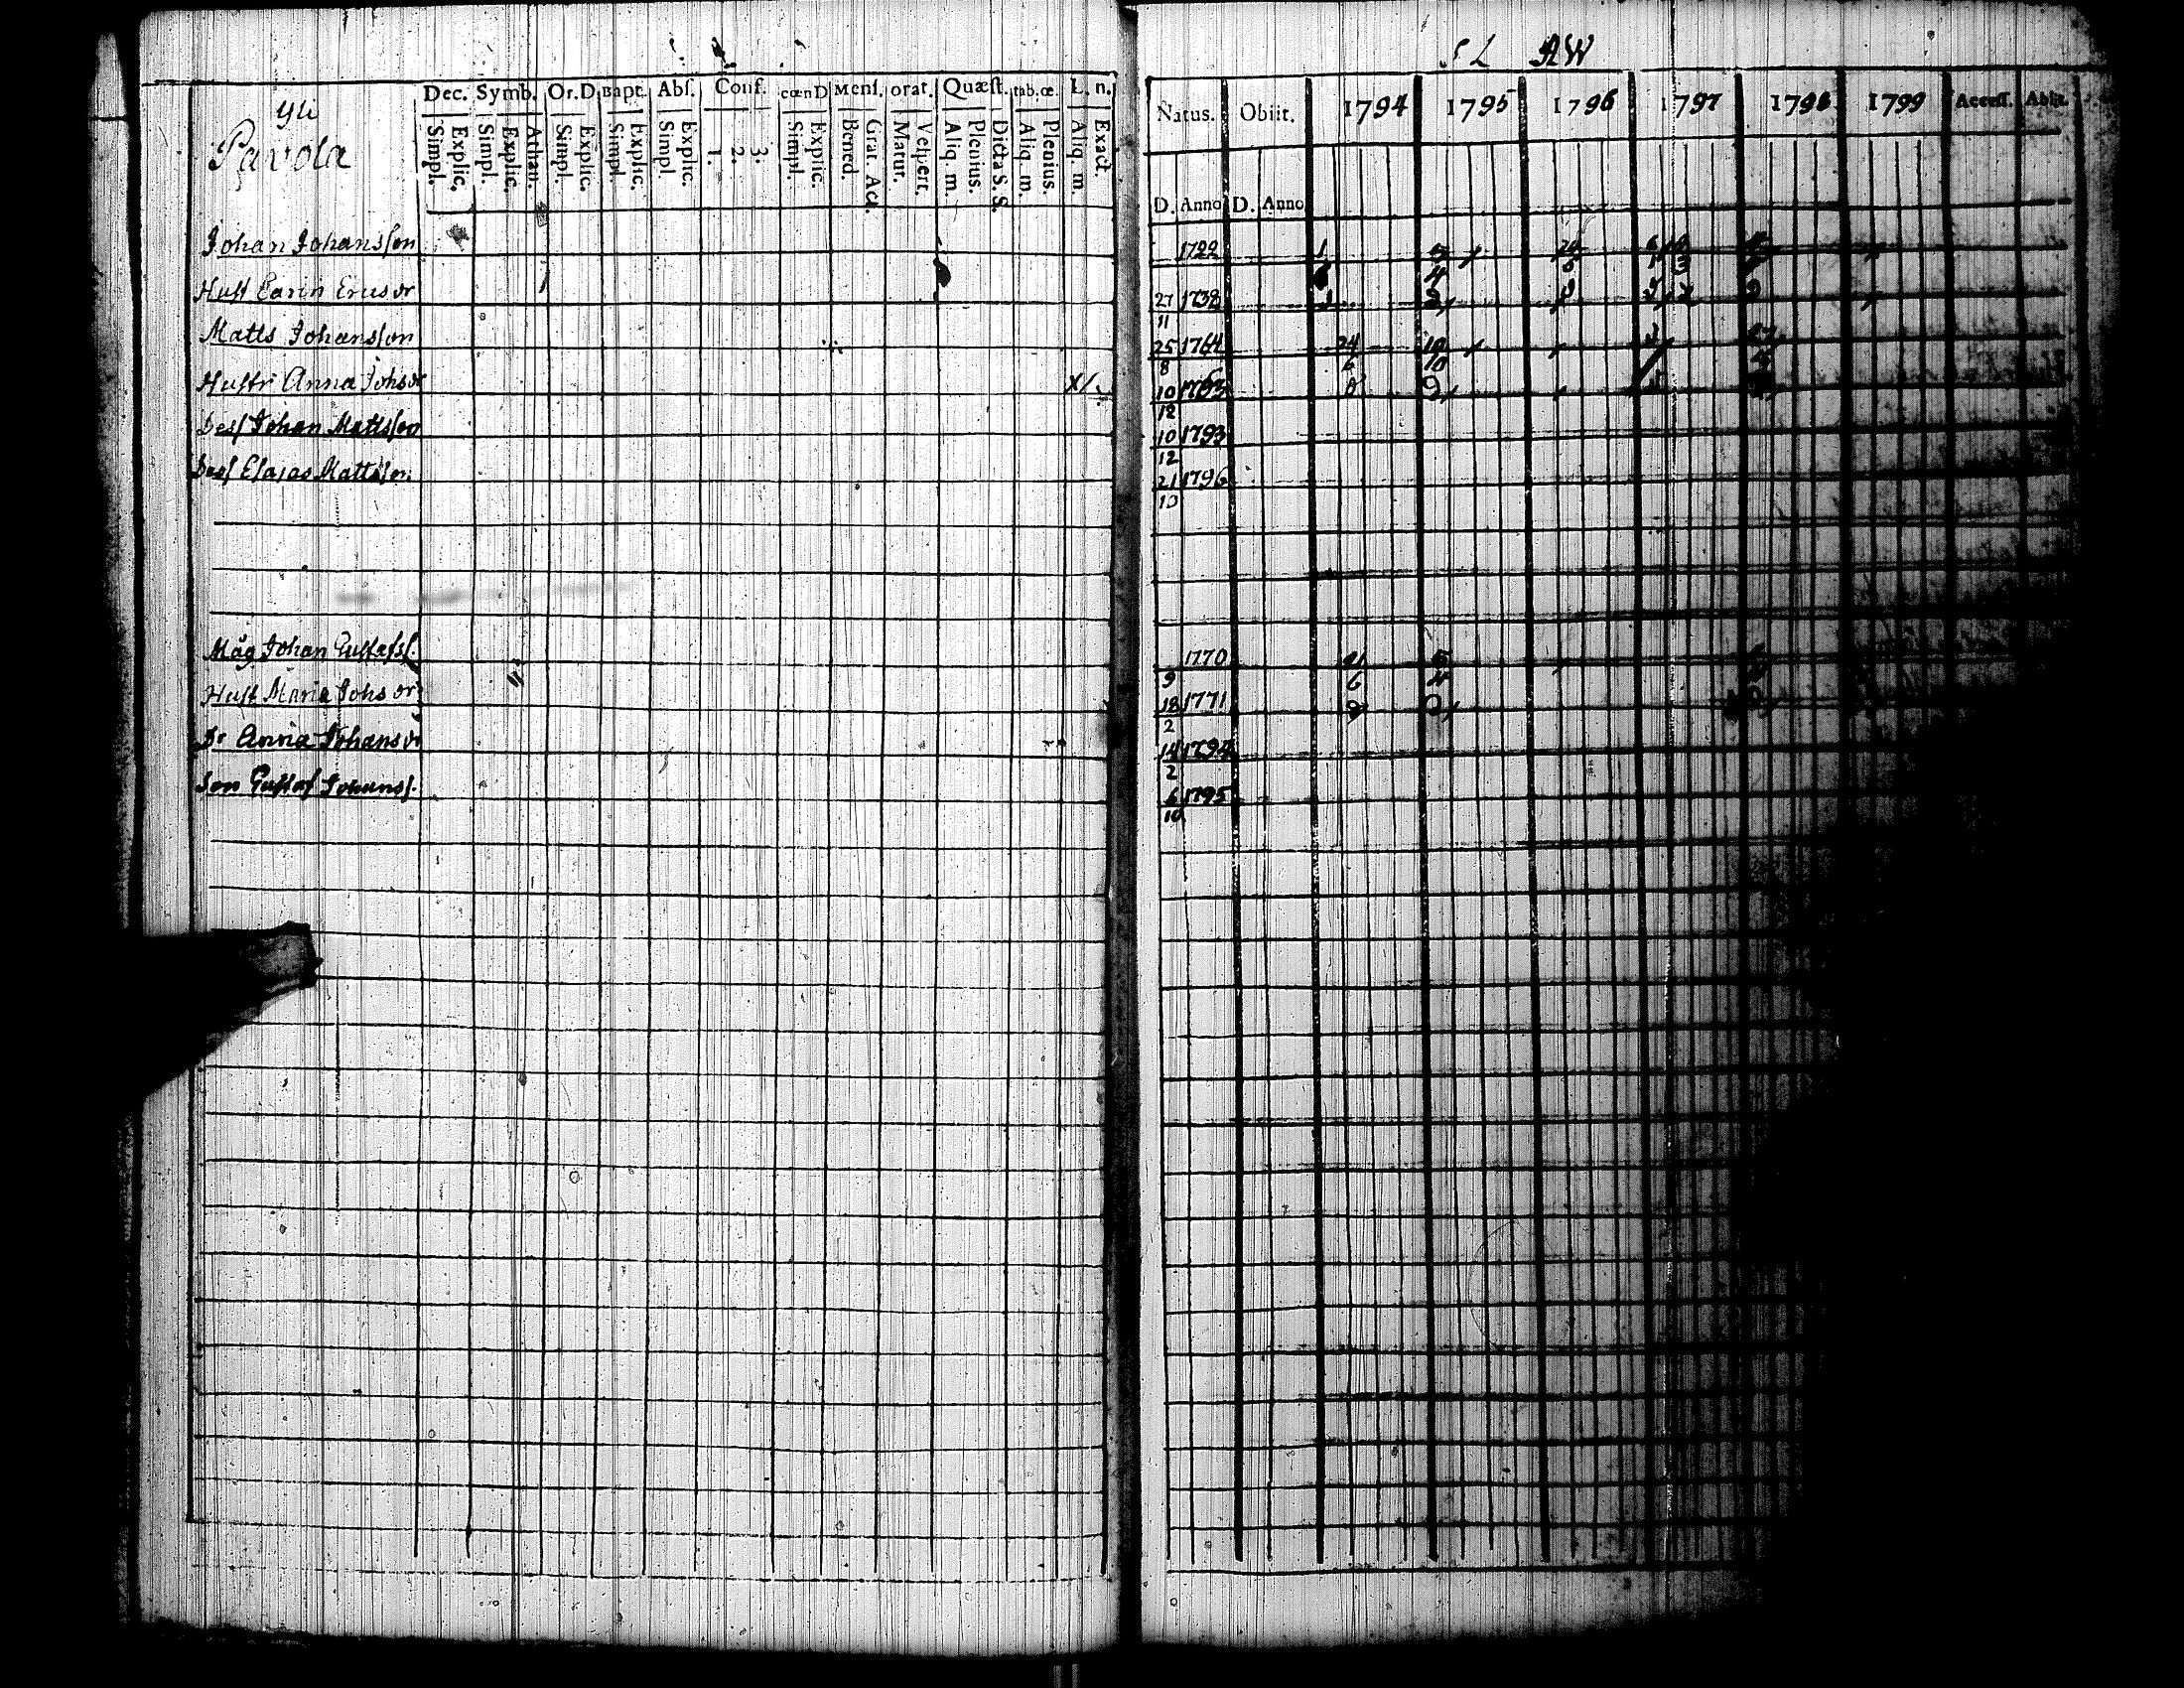 Yli
Pavola
Dec. Symb. Or.D Bapt. Abſ. Conf. cœnD Menſ. orat. Quæſt. tab.œ. L. n.
Simpl. Explic. Simpl. Explic. Athan. Simpl. Explic. Simpl. Explic. Simpl Explic. 1. 2. 3. Simpl. Explic. Bened. Grat. Act. Matut. Veſpert. Aliq. m. Plenius. Dicta S. S. Aliq. m. Plenius. Aliq. m. Exact.
Johan Johansson
Hust Carin Ericsdr
Matts Johansson
Hustr Anna Johsdr X/.
Dess Johan Mattsson
Dess Esajas Mattsson
Måg Johan Gustafss.
Hust Maria Johsdr
Dr Anna Johansdr
Son Gustaf Johanss.
SL AW
Natus. Obiit. 1794 1795 1796 1797 1798 1799 Acceſſ. Abiit.
D. Anno D. Anno
1722 1 5
4
27 1738
11
25 1764 24 10
8 6 10
10 1763
12
10 1793
12
21 1796
10
1770 21 5
9 6 4
18 1771
2
14 1794
2
6 1795
10